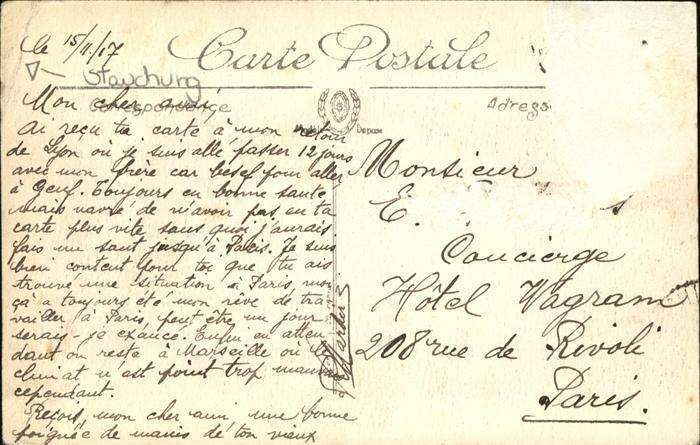 Carte Postale
le 15/11/17
Stauchung
Correspondance
Adress
Mon cher ami,
Ai reçu ta carte à mon retour
de Lyon où je suis allé passer 12 jours
avec mon frère car besef pour aller
à Genf. Toujours en bonne santé
mais navré de n'avoir pas eu ta
carte plus vite sans quoi j'aurais
fais un saut jusqu'à Paris. Je suis
bien content pour toi que tu ais
trouvé une situation à Paris, moi
ça a toujours été mon rêve de tra
vailler à Paris, peut être un jour
serais-je exaucé. Enfin en atten
dant on reste à Marseille où le
climat n'est point trop mauvais
cependant.
Reçois, mon cher ami une bonne
poignée de mains de ton vieux
Monsieur
E. s
Concierge
Hôtel Wagram
208 rue de Rivoli
Paris.